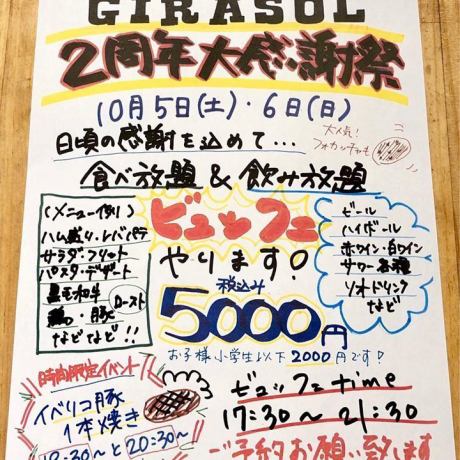 GIRASOL
2周年大感謝祭
10月5日(土)・6日(日)
日頃の感謝を込めて...
大人気!
フォカッチャも
食べ放題 & 飲み放題
(メニュー例)
ハム盛り・レバパテ
サラダ・フリット
パスタ・デザート
黒毛和牛
鶏・豚 ロースト
などなど!!
ビュッフェ
やります!
税込み
5000円
お子様小学生以下2000円です!
ビール
ハイボール
赤ワイン・白ワイン
サワー各種
ソフトドリンク
など
時間限定イベント
イベリコ豚
1本焼き
18:30〜と20:30〜
ビュッフェtime
17:30〜21:30
ご予約お願い致します